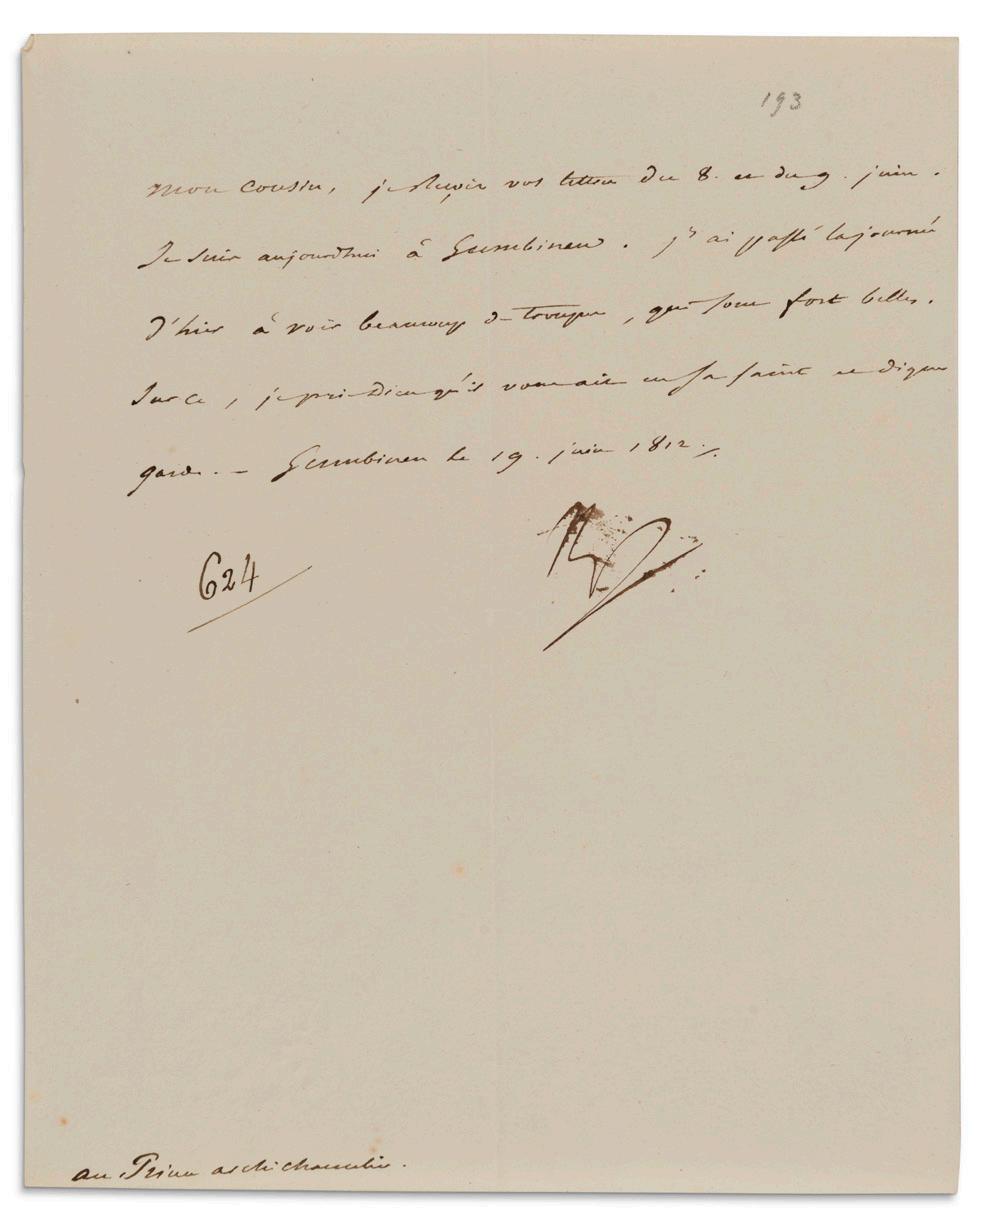 193
Mon Cousin, je reçois vos lettres du 8. et du 9. juin.
Je suis aujourd'hui à Gumbinen. j'ai passé la journée
d'hier à voir beaucoup de troupes, qui sont fort belles.
Sur ce, je prie Dieu qu'il vous ait en sa sainte et digne
garde. — Gumbinen le 19. juin 1812./.
Np
624
au Prince archichancelier.